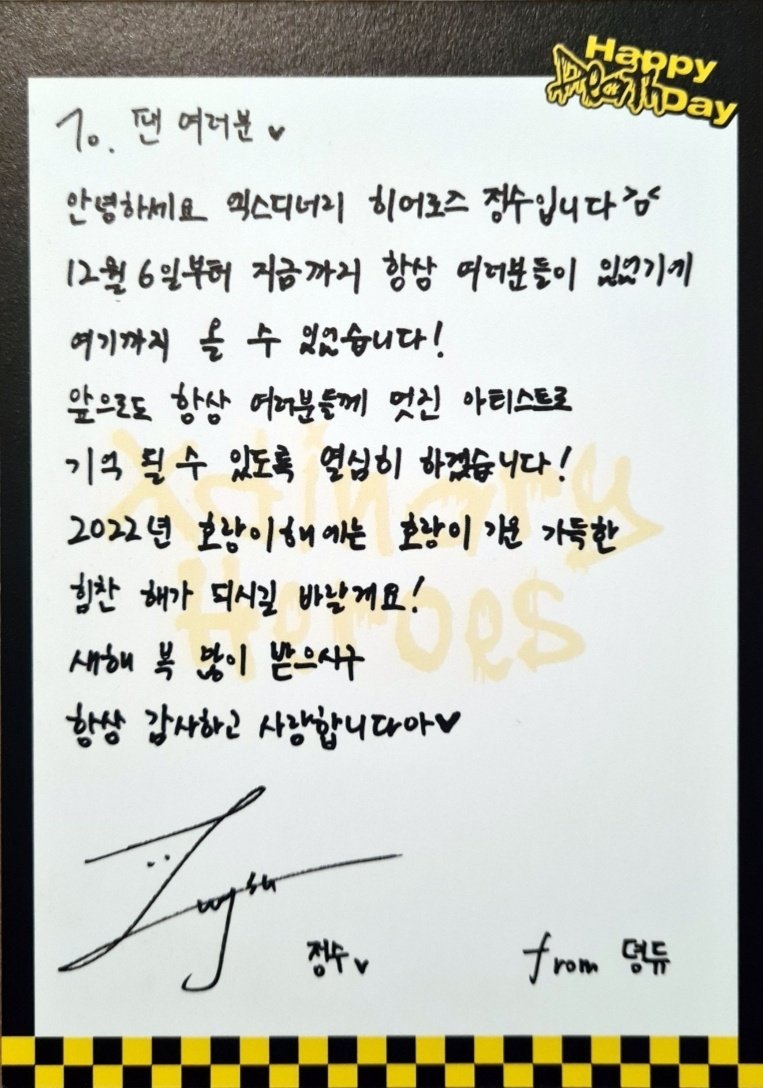 Happy
Death Day
To. 팬 여러분 ♥
안녕하세요 엑스디너리 히어로즈 정수입니다 >o<
12월 6일부터 지금까지 항상 여러분들이 있었기에
여기까지 올 수 있었습니다!
앞으로도 항상 여러분들께 멋진 아티스트로
기억 될 수 있도록 열심히 하겠습니다!
2022년 호랑이해에는 호랑이 기운 가득한
힘찬 해가 되시길 바랄게요!
새해 복 많이 받으시구
항상 감사하고 사랑합니다아♥
Xdinary
Heroes
Jungsu
정수♥
from 뎡듀